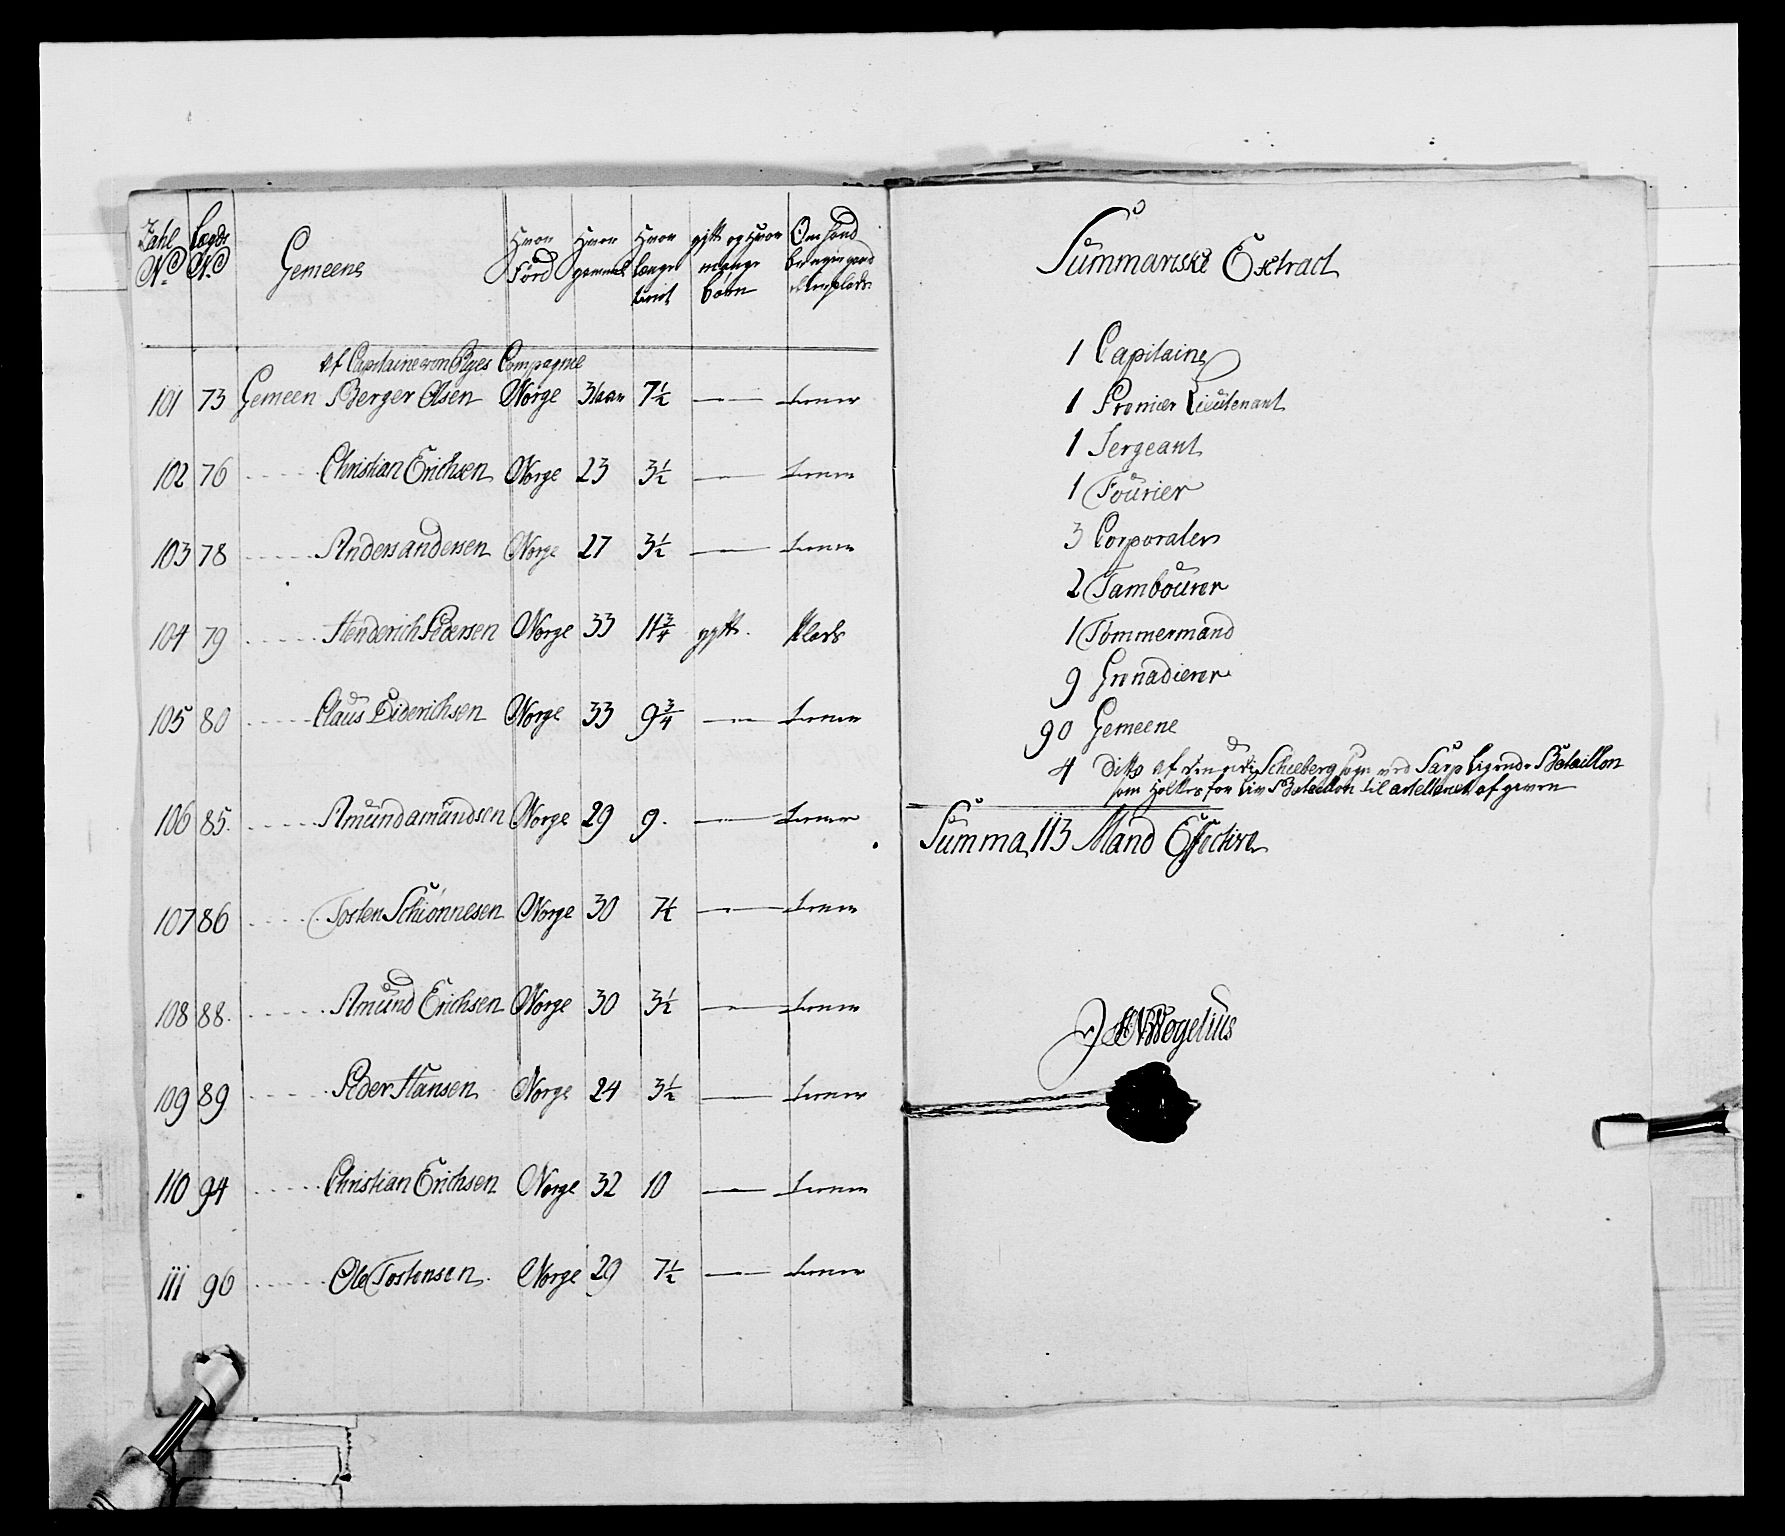 Zahl No. Lægds No. Gemeene Hvor Förd Hvor gammel Hvor længe tient gift og Hvor mange börn
Af Capitaine von Ryes Compagnie
101 73 Gemeen Berger Olsen Norge 31 aar 7½ —
102 76 Christian Erichsen Norge 23 3½ —
103 78 Anders andersen Norge 27 3½ —
104 79 Henderich Pedersen Norge 33 11¾ gift. Plads
105 80 Claus Diderichsen Norge 33 9¾ —
106 85. Amund amundsen Norge 29 9. —
107 86 Tosten Schiönnesen Norge 30 7¼ —
108 88. Amund Erichsen Norge 30 3½ —
109 89 Peder Hansen Norge 24 3½ —
110 94 Christian Erichsen Norge 32 10 —
111 96 Ole Tostensen. Norge 29 7½ —
Summariske Extract
1 Capitaine
1 Premier Lieutenant
1 Sergeant
1 Fourier
3 Corporaler
2 Tambourer
1 Tömmermand
9 Grenadierer
90 Gemeene
4 Ditto af Schieberg Sogn Bataillon
som for Liv Bataillon til afgiven
Summa 113 Mand Effective
Wegelius